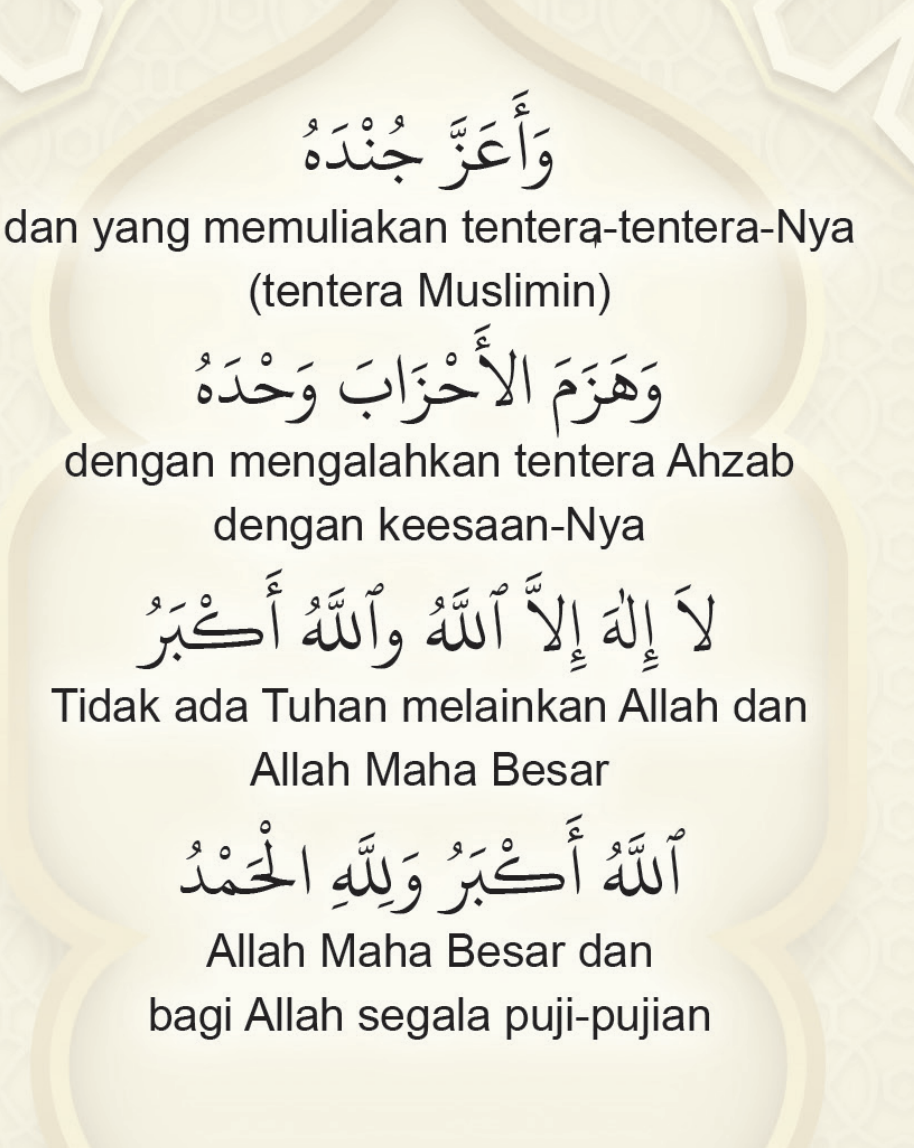 وَأَعَزَّ جُنْدَهُ
dan yang memuliakan tentera-tentera-Nya
(tentera Muslimin)
وَهَزَمَ الأَحْزَابَ وَحْدَهُ
dengan mengalahkan tentera Ahzab
dengan keesaan-Nya
لاَ إِلٰهَ إِلاَّ ٱللَّهُ وٱللَّهُ أَكْبَرُ
Tidak ada Tuhan melainkan Allah dan
Allah Maha Besar
ٱللَّهُ أَكْبَرُ وَلِلَّهِ الْحَمْدُ
Allah Maha Besar dan
bagi Allah segala puji-pujian